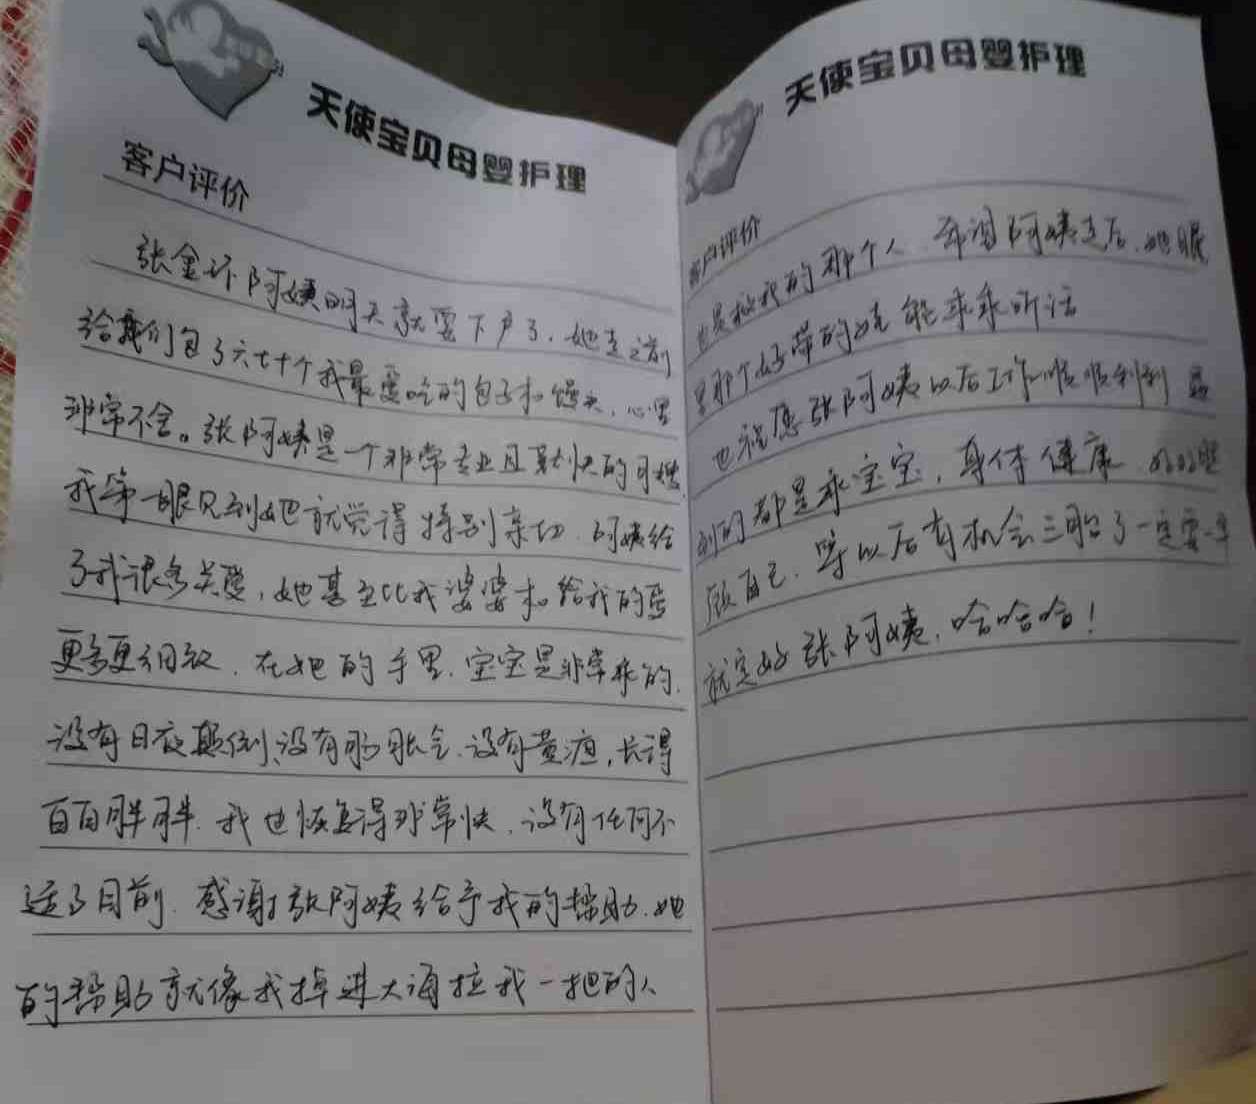 天使宝贝母婴护理
客户评价
张金环阿姨明天就要下户了，她走之前
给我们包了六七十个我最爱吃的包子和馒头，心里
非常不舍。张阿姨是一个非常专业且勤快的阿姨，
我第一眼见到她就觉得特别亲切，阿姨给
了我很多关爱，她甚至比我婆婆给我的爱
更多更细致，在她的手里，宝宝是非常乖的，
没有日夜颠倒、没有胀气，没有黄疸，长得
白白胖胖，我也恢复得非常快，没有任何不
适了目前，感谢张阿姨给予我的帮助，她
的帮助就像我掉进大海拉我一把的人
天使宝贝母婴护理
客户评价
也是救我的那个人，希望阿姨走后，她眼
里那个好带的娃能乖乖听话
也祝愿张阿姨以后工作顺顺利利
到的都是乖宝宝，身体健康 好好照
顾自己，等以后有机会三胎了一定要早早
就定好张阿姨，哈哈哈！